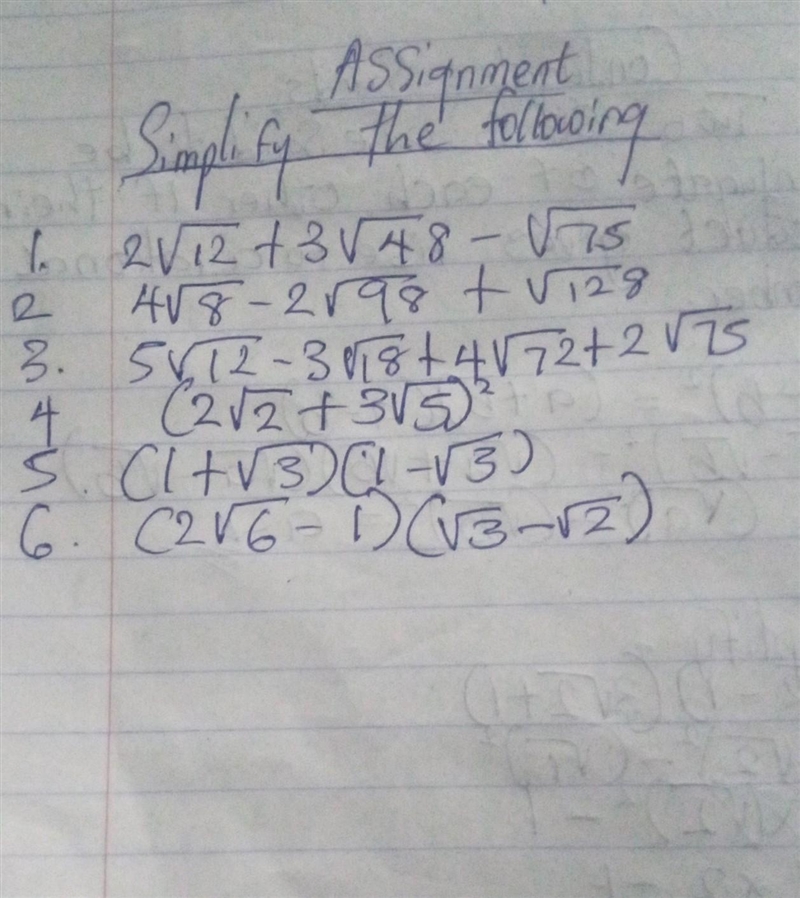 Assignment
Simplify the following
1. 2√12 + 3√48 - √75
2 4√8 - 2√98 + √128
3. 5√12 - 3√18 + 4√72 + 2√75
4 (2√2 + 3√5)²
5. (1 + √3)(1 - √3)
6. (2√6 - 1)(√3 - √2)